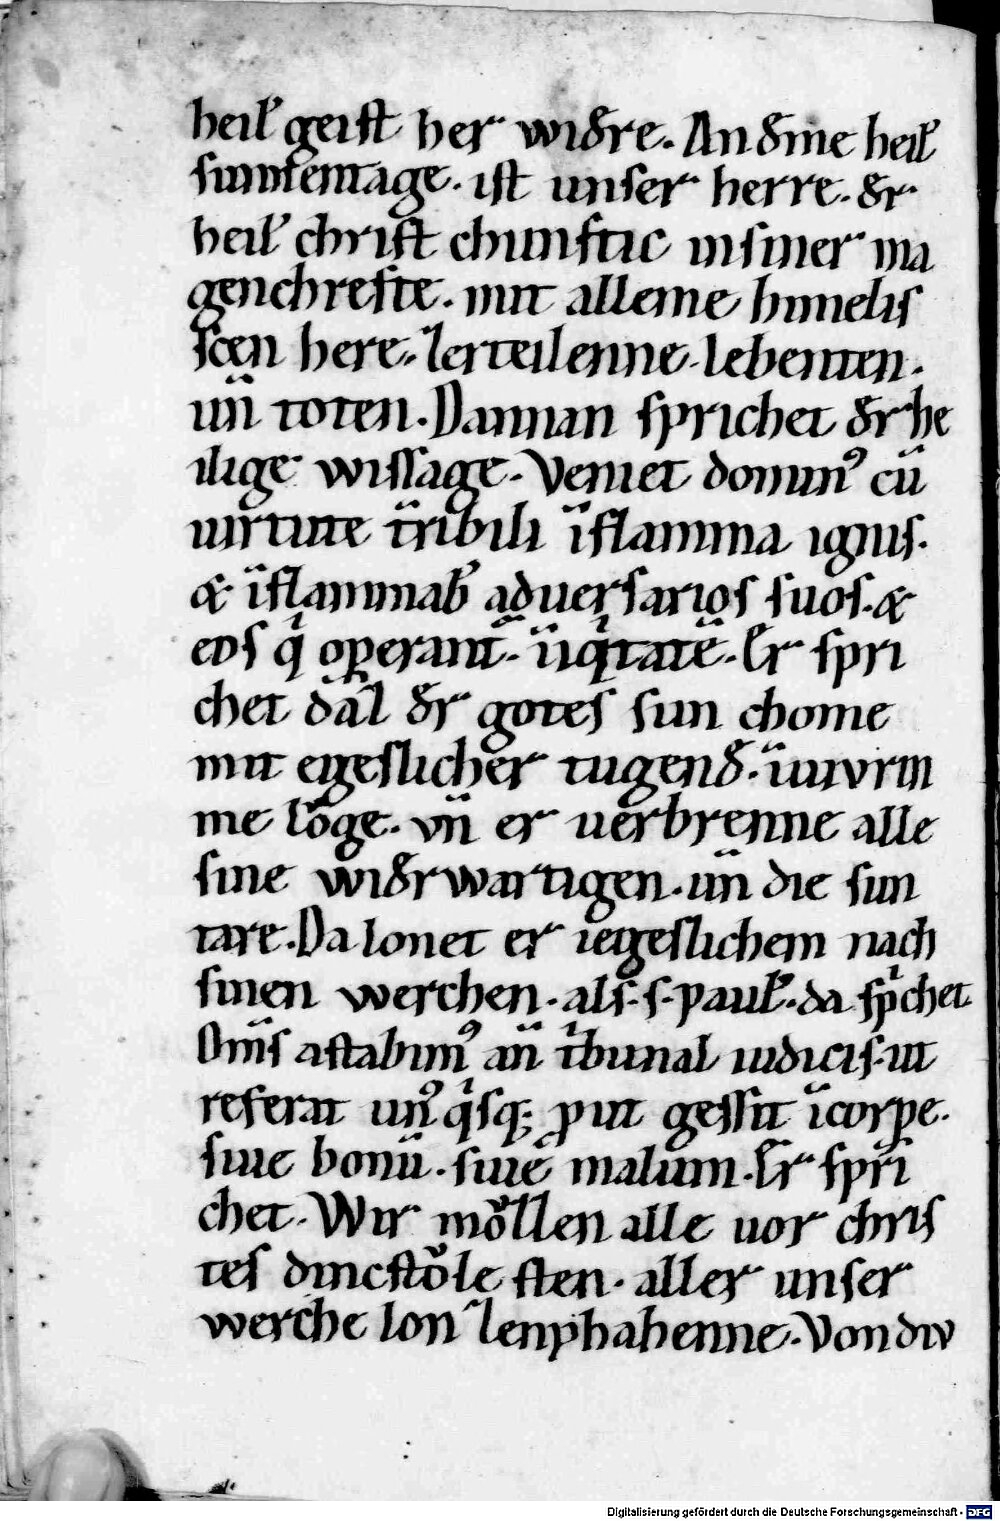 heil' geist her wiđre. An đme heil'
sunnentage. ist unser herre. đr
heil' christ chunftic in siner ma
genchrefte. mit alleme himelis
scen here. zerteilenne. lebenten.
uñ toten. Dannan sprichet đr he
ilige wissage. Veniet domin⁹ cū
uirtute t̄ribili ī flamma ignis.
& īflammab' aduersarios suos. &
eos q̇ operant̄. īiq̇tatē. Er spri
chet dāz đr gotes sun chome
mit egeslicher tugenđ. ī uivrin
me lo̊ge. vñ er uerbrenne alle
sine wiđrwartigen. uñ die sun
tare. Da lonet er iegeslichem nach
sinen werchen. als. s. paul'. da sp̍chet
Om̄s astabim⁹ añ t̍bunal iudicis. ut
referat un⁹q̍sq; ꝓut gessit ī corpe.
siue bonū. siue malum. Er spri
chet. Wir mo̊zzen alle uor chris
tes dincsto̊le sten. aller unser
werche lon zenphahenne. Von div
Digitalisierung gefördert durch die Deutsche Forschungsgemeinschaft - DFG